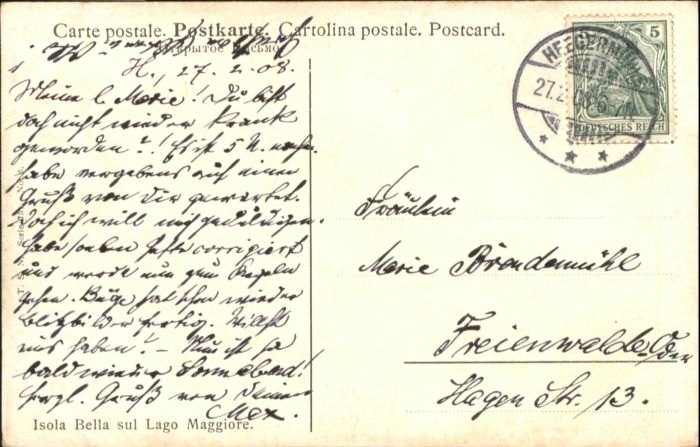 Carte postale. Postkarte. Cartolina postale. Postcard.
Открытое письмо
H., 27. 2. 08.
Meine l. Marie! Du bist
doch nicht wieder krank
geworden?! Es ist 5 N. nachm.
habe vergebens auf einen
Gruß von Dir gewartet.
Doch ich will mich geduldigen.
Habe soeben Hefte corrigiert
und werde nun zum Kegeln
gehen. Büge hat schon wieder
Blitzbilder fertig. Willst
uns haben? – Nun ist ja
bald wieder Sonnabend!
Hrzgl. Gruß von Deinem
Max.
Isola Bella sul Lago Maggiore.
HEEGERMÜHLE
27.2.08
5
DEUTSCHES REICH
Fräulein
Marie Brendemühl
Freienwalde Oder
Hagen Str. 13.